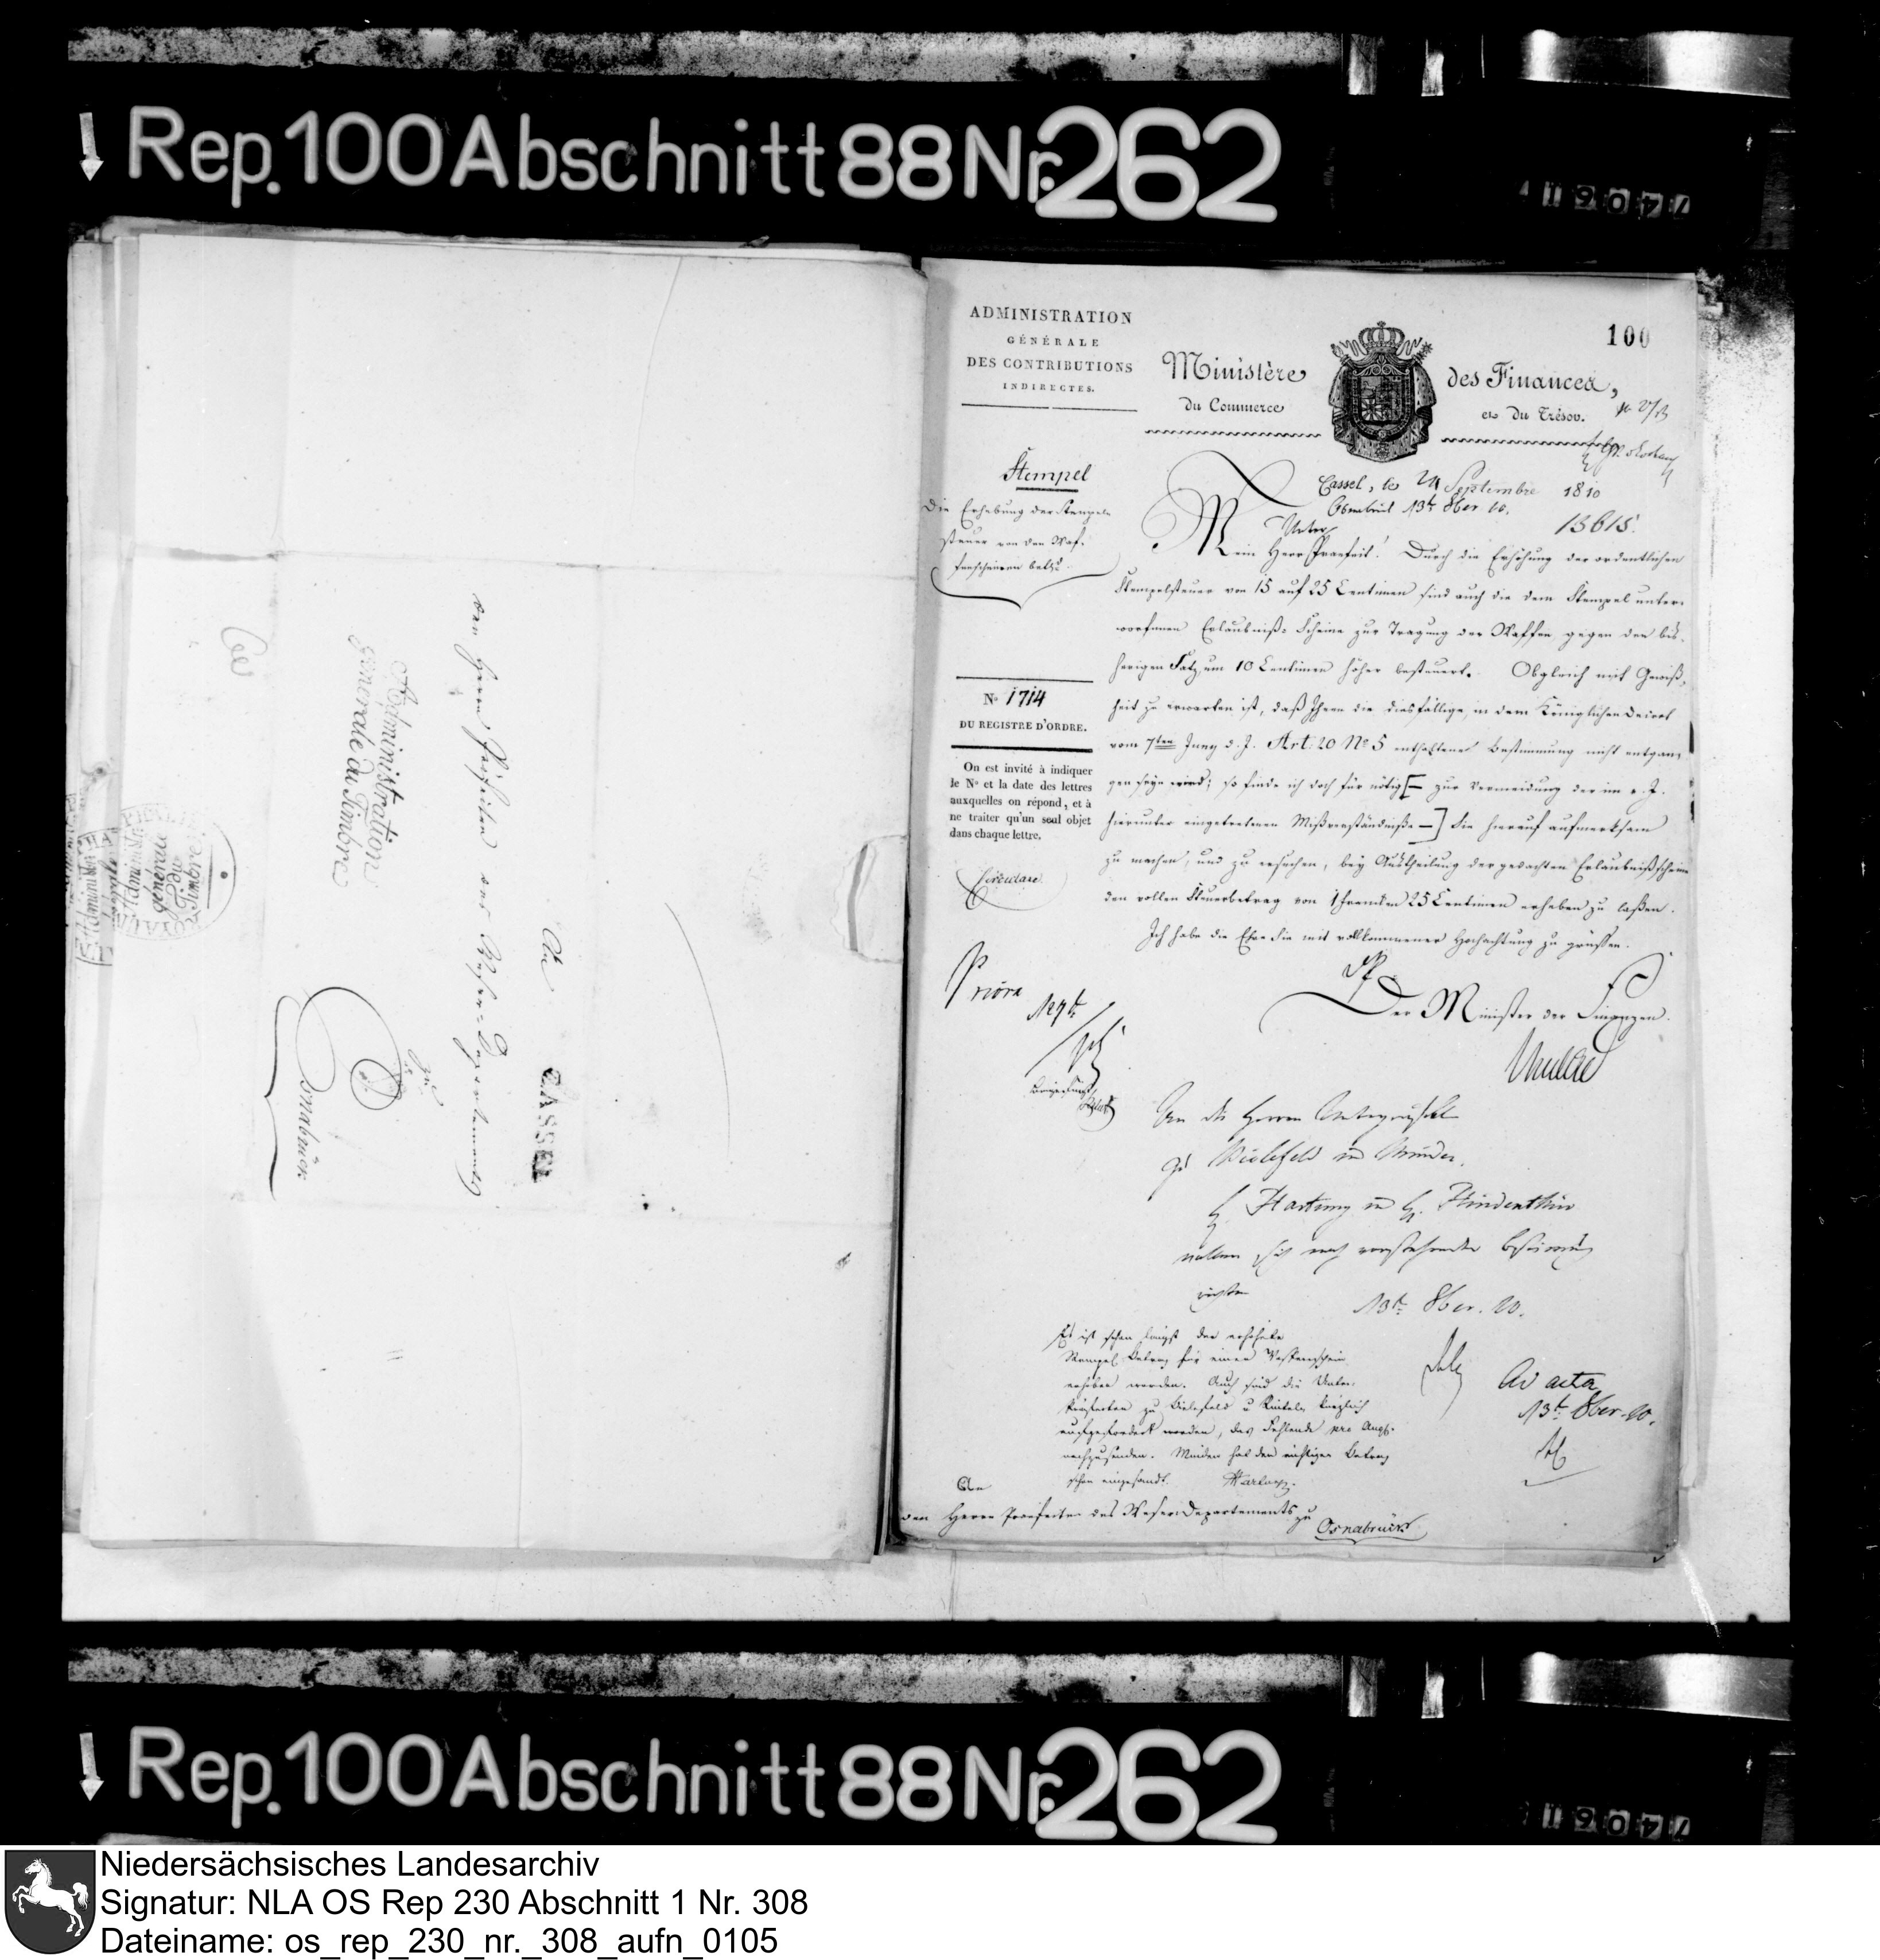 Rep. 100 Abschnitt 88 Nr. 262
Administration
générale du Timbre
An
den Herrn Präfecten des Weser-Departements
zu
Osnabrück
CASSEL
Administr.
générale
du
Timbre
100
ADMINISTRATION
GÉNÉRALE
DES CONTRIBUTIONS
INDIRECTES.
Ministère des Finances,
du Commerce et du Trésor.
Cassel, le 24 Septembre 1810
Osnabrück 13t 8ber 10.
13615.
Stempel
Die Erhebung der Stempel-
steuer von den Waf-
fenscheinen betr.
Unter
Mein Herr Praefect! Durch die Erhöhung der ordentlichen
Stempelsteuer von 15 auf 25 Centimen sind auch die dem Stempel unter-
worfenen Erlaubniß-Scheine zur Tragung der Waffen gegen den bis-
herigen Satz um 10 Centimen höher besteuert. Obgleich mit Gewiß-
heit zu erwarten ist, daß Ihnen die diesfällige, in dem Königlichen Decret
vom 7ten Juny d. J. Art: 20 No 5 enthaltene Bestimmung nicht entgan-
gen seyn wird; so finde ich doch für nötig [— zur Vermeidung der im v. J.
hierunter eingetretenen Mißverständniße —] Sie hierauf aufmerksam
zu machen, und zu ersuchen, bey Austheilung der gedachten Erlaubnißscheine
den vollen Steuerbetrag von 1 Franken 25 Centimen erheben zu laßen.
Ich habe die Ehre Sie mit vollkommener Hochachtung zu grüßen.
Der Minister der Finanzen.
No 1714
DU REGISTRE D'ORDRE.
On est invité à indiquer
le No et la date des lettres
auxquelles on répond, et à
ne traiter qu'un seul objet
dans chaque lettre.
Circulare
Priora
An die Herren Unterpräfecten
zu Bielefeld und Minden.
H. Hartung und H.
wollen sich nach vorstehender Bestimmung
richten
13t 8ber. 10.
Es ist schon längst der erhöhete
Stempel Betrag für einen Waffenschein
erhoben worden. Auch sind die Unter-
präfecten zu Bielefeld u Rinteln kürzlich
aufgefordert worden, das Fehlende pro Augt.
nachzusenden. Minden hat den richtigen Betrag
schon eingesandt. Hartung.
Ad acta
13t 8ber. 10.
An
den Herrn Praefecten des Weser-Departements zu Osnabrück
Rep. 100 Abschnitt 88 Nr. 262
Niedersächsisches Landesarchiv
Signatur: NLA OS Rep 230 Abschnitt 1 Nr. 308
Dateiname: os_rep_230_nr._308_aufn_0105